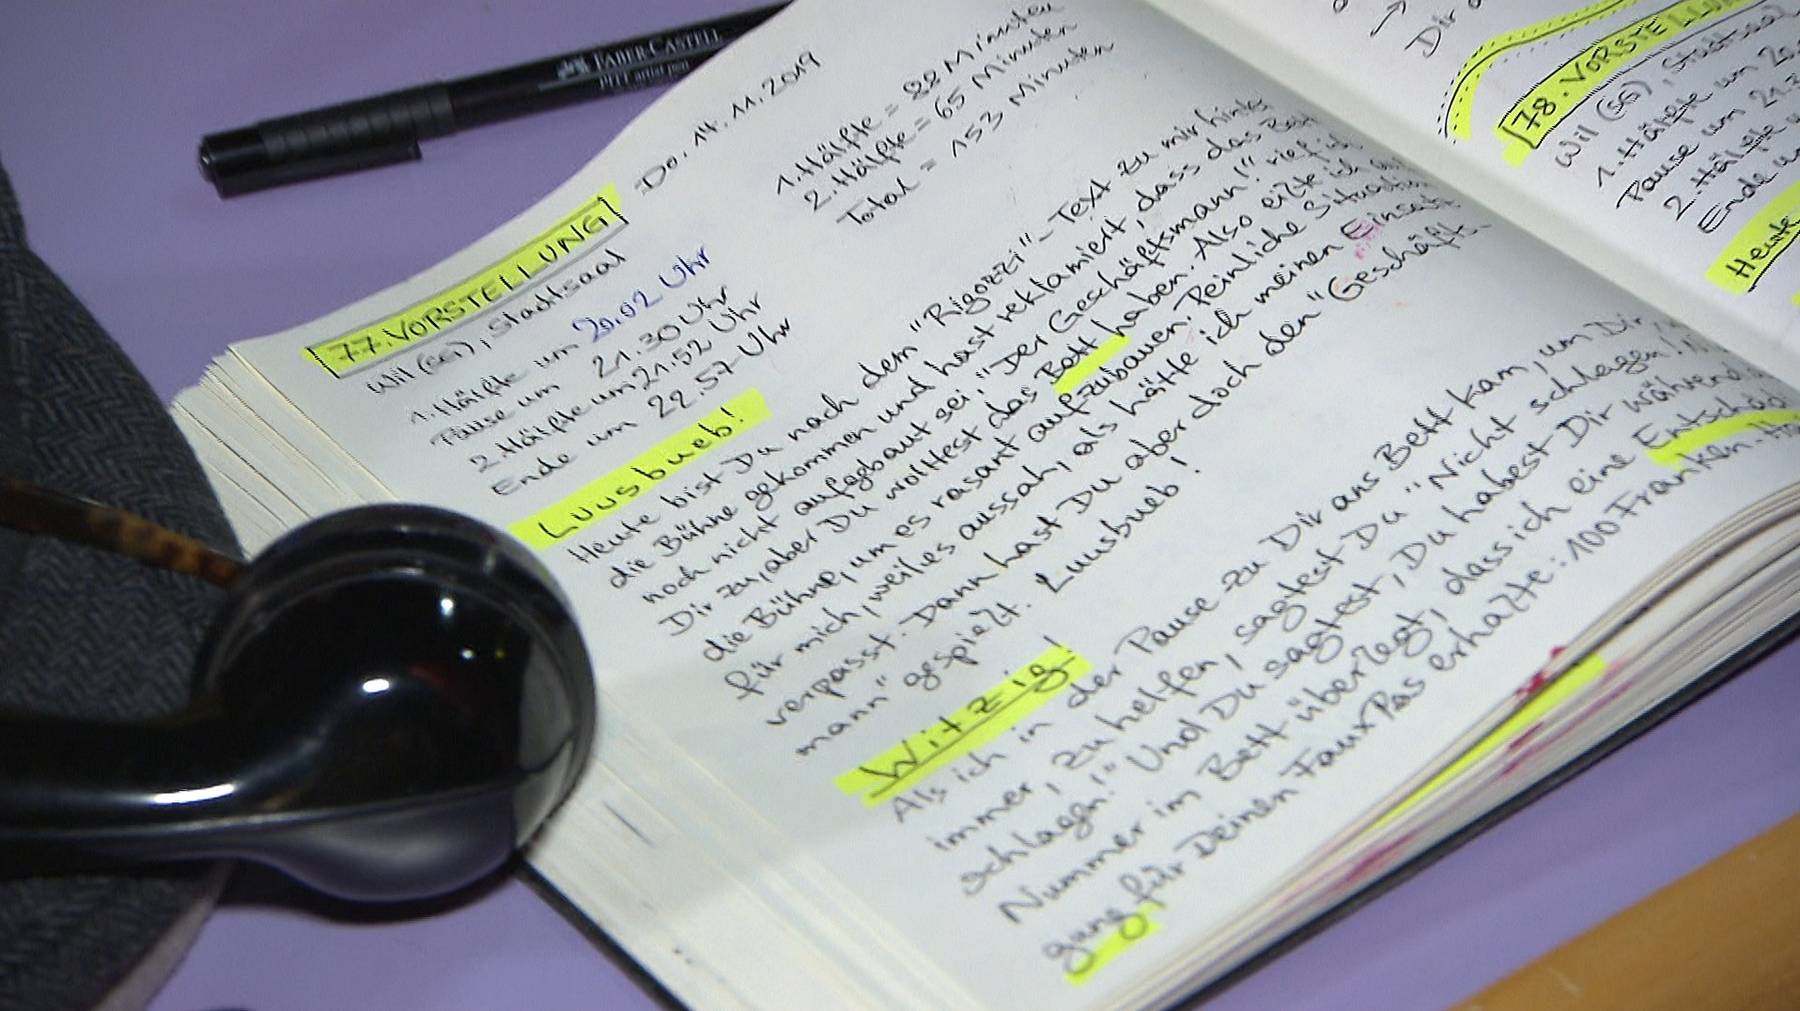 FABER-CASTELL
PITT artist pen
77. VORSTELLUNG
Do. 14.11.2019
Wil (SG), Stadtsaal
1. Hälfte um 20.02 Uhr
Pause um 21.30 Uhr
2. Hälfte um 21.52 Uhr
Ende um 22.57 Uhr
1. Hälfte = 88 Minuten
2. Hälfte = 65 Minuten
Total = 153 Minuten
Luusbueb!
Heute bist Du nach dem "Rigozzi"-Text zu mir hinter
die Bühne gekommen und hast reklamiert, dass das Bett
noch nicht aufgebaut sei. "Der Geschäftsmann!" rief ich
Dir zu, aber Du wolltest das Bett haben. Also eilte ich
die Bühne, um es rasant aufzubauen. Peinliche Situation
für mich, weil es aussah, als hätte ich meinen Einsatz
verpasst. Dann hast Du aber doch den "Geschäfts-
mann" gespielt. Luusbueb!
Witzig!
Als ich in der Pause zu Dir ans Bett kam, um Dir,
immer, zu helfen, sagtest Du "Nicht schlagen!
schlagen!" Und Du sagtest, Du habest Dir während
Nummer im Bett überlegt, dass ich eine Entschädi
gung für Deinen FauxPas erhalte: 100 Franken.
Dir
78. VORSTELLUNG
Wil (SG), Stadtsaal
1. Hälfte um 20.
Pause um 21.3
2. Hälfte
Ende
Heute